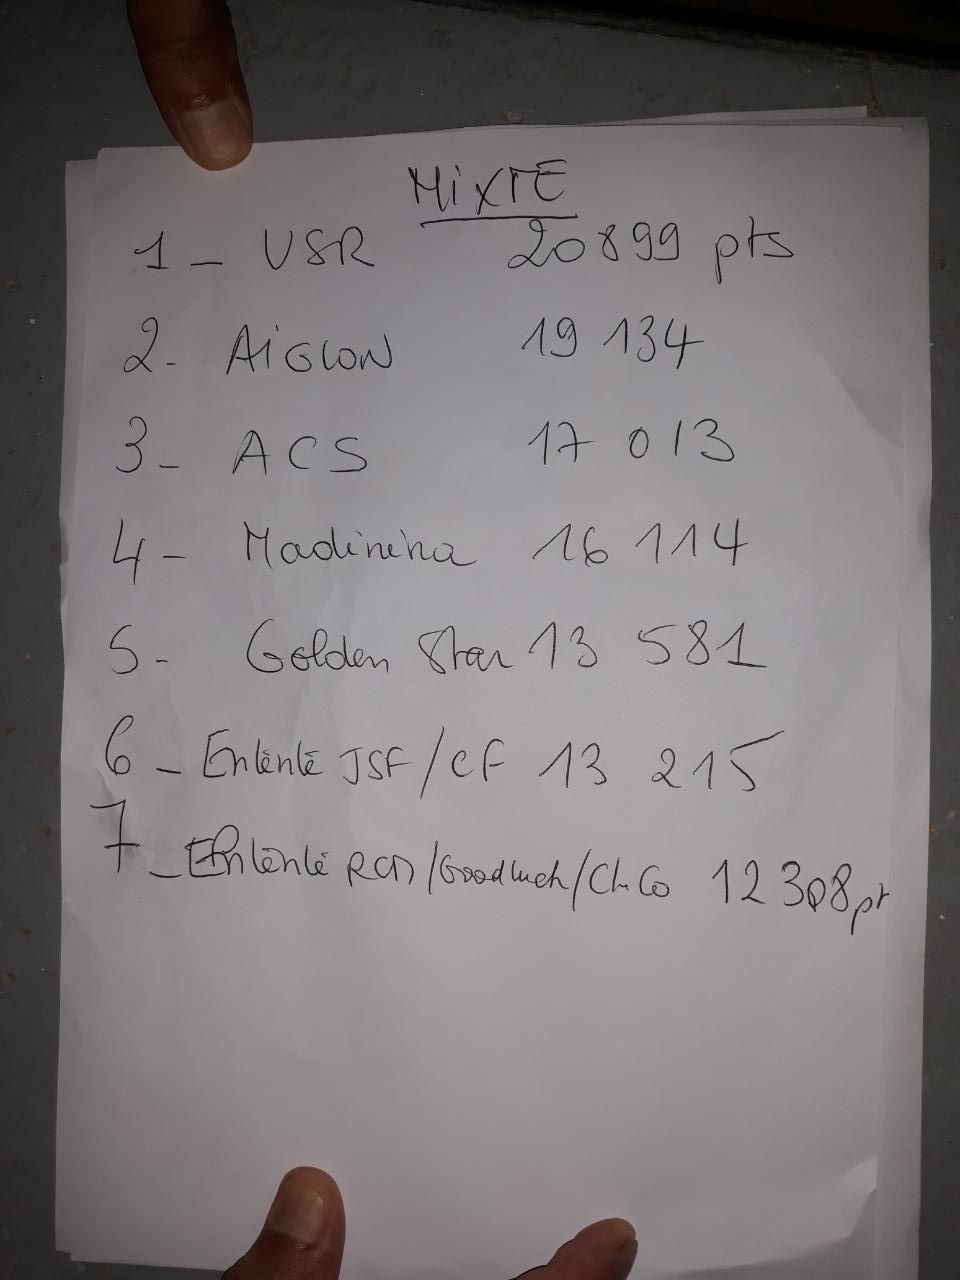 MiXTE
1 - USR 20899 pts
2 - AiGLON 19 134
3 - ACS 17 013
4 - Madinina 16 114
5 - Golden Star 13 581
6 - Entente JSF/CF 13 215
7 - Entente RCD/Goodluck/Ch.Co 12 308 pt